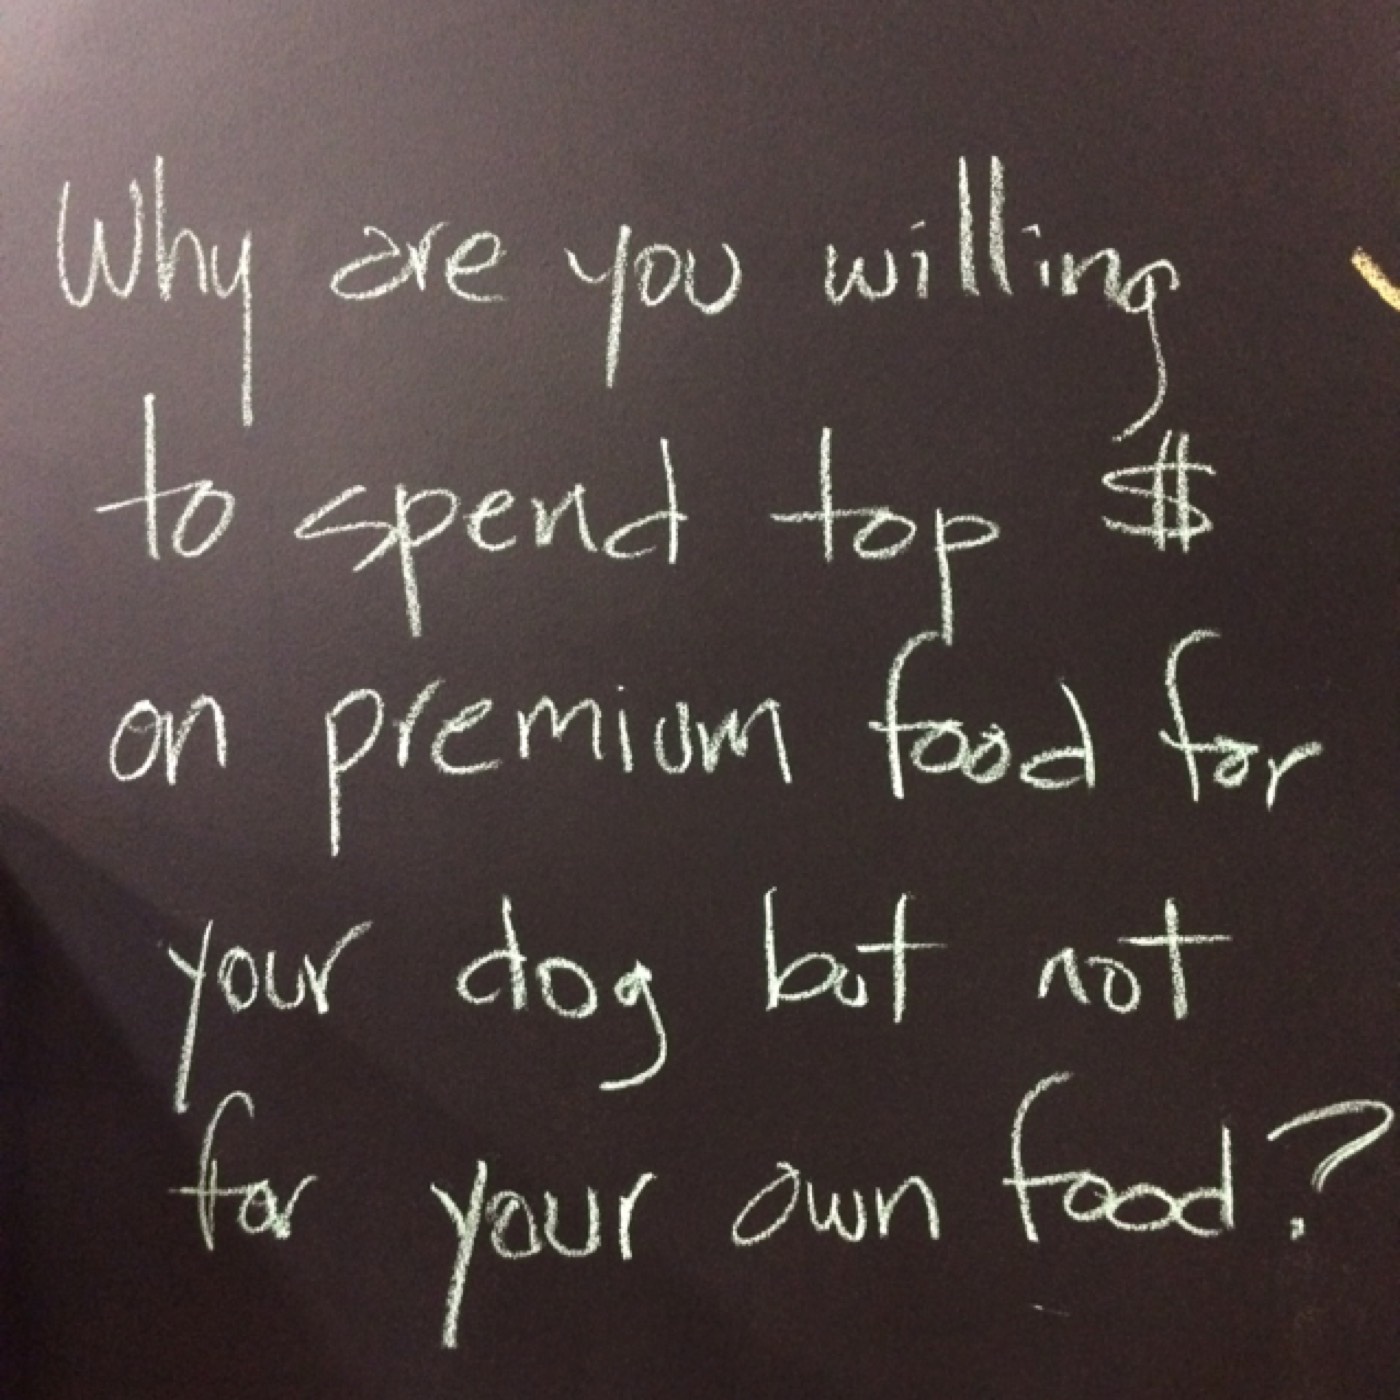 Why are you willing
to spend top $
on premium food for
your dog but not
for your own food?